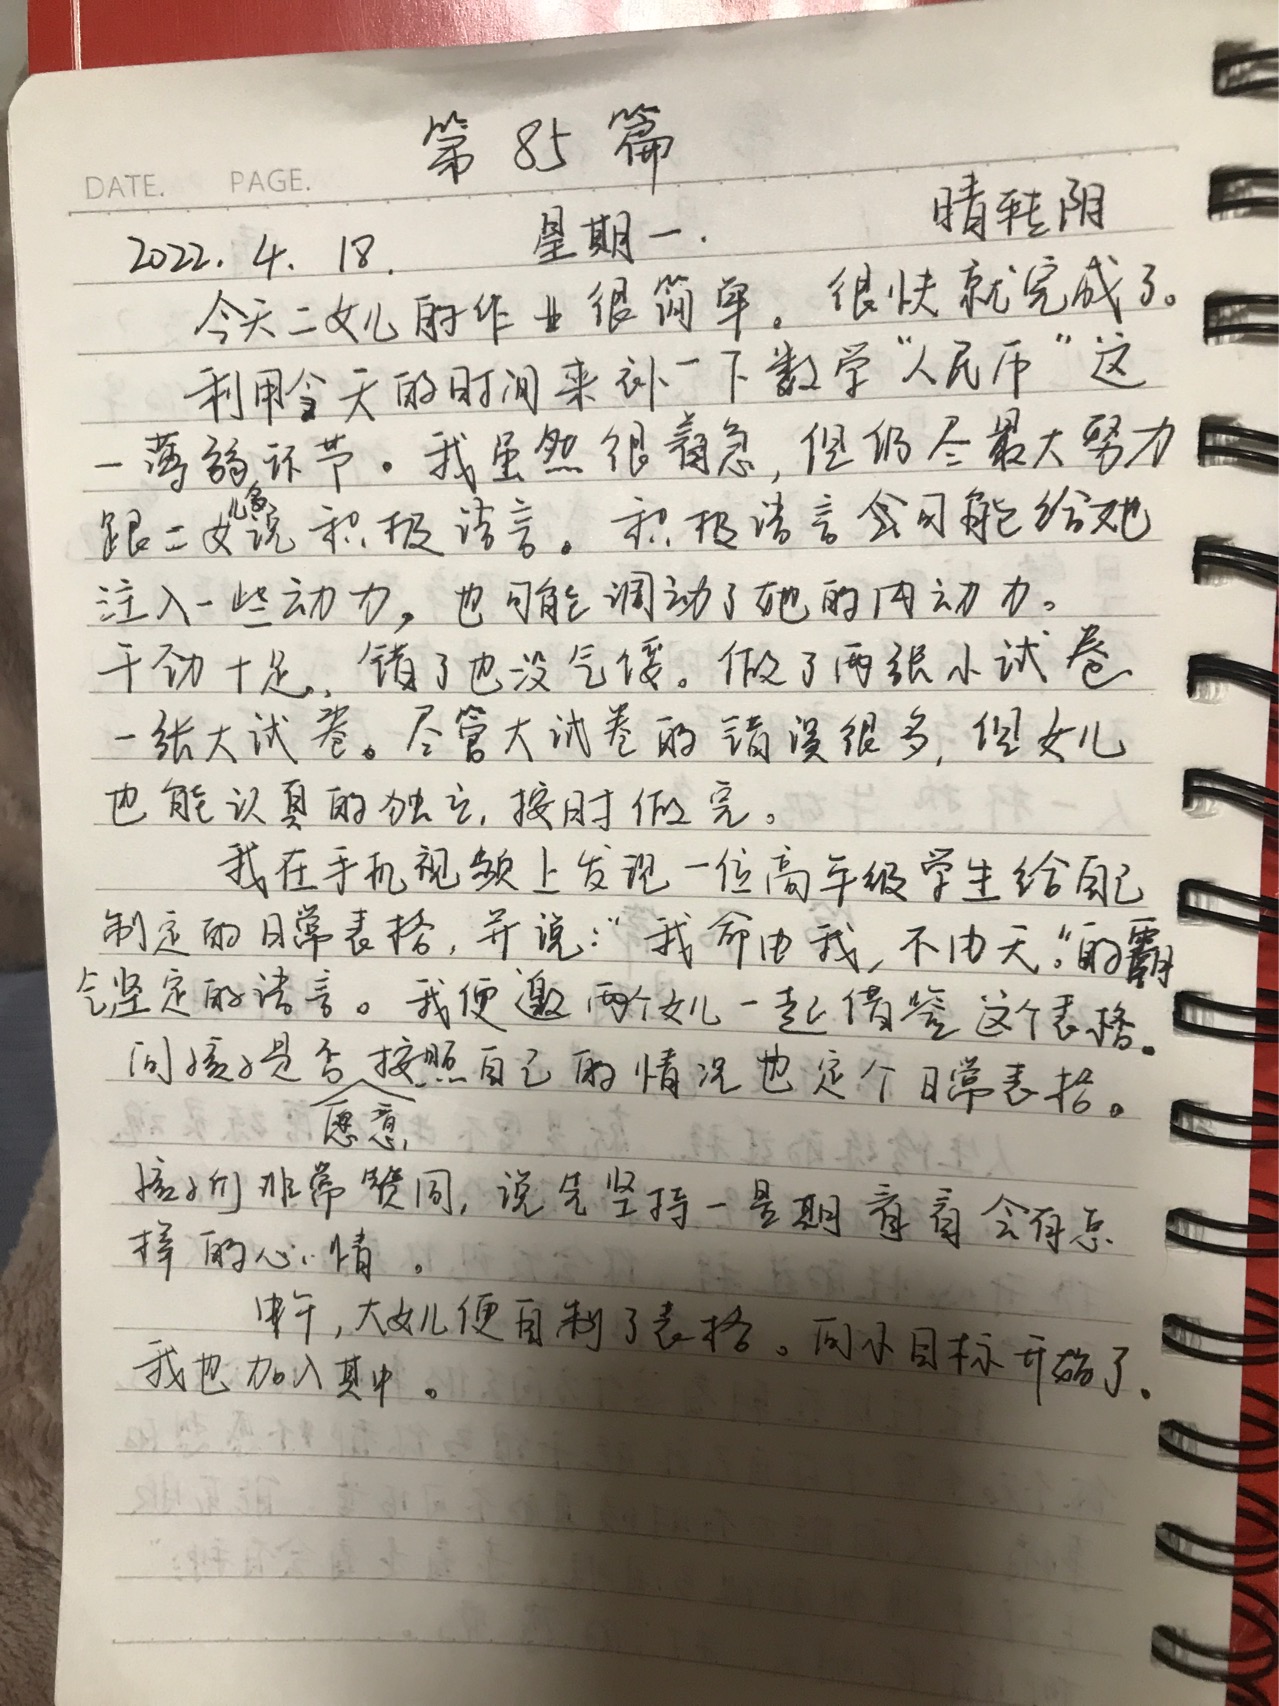 第 85 篇
DATE. PAGE.
2022.4.18. 星期一. 晴转阴
今天二女儿的作业很简单。很快就完成了。
利用今天的时间来补一下数学“人民币”这
一薄弱环节。我虽然很着急,但仍尽最大努力
跟二女儿多说积极语言。积极语言会可能给她
注入一些动力,也可能调动了她的内动力。
干劲十足,错了也没气馁。做了两张小试卷
一张大试卷。尽管大试卷的错误很多,但女儿
也能认真的独立,按时做完。
我在手机视频上发现一位高年级学生给自己
制定的日常表格,并说:“我命由我,不由天。”的霸
气坚定的语言。我便邀两个女儿一起借鉴这个表格。
问孩子是否愿意,按照自己的情况也定个日常表格。
孩子们非常赞同,说先坚持一星期看看会有怎
样的心情。
中午,大女儿便自制了表格。向小目标开始了.
我也加入其中。